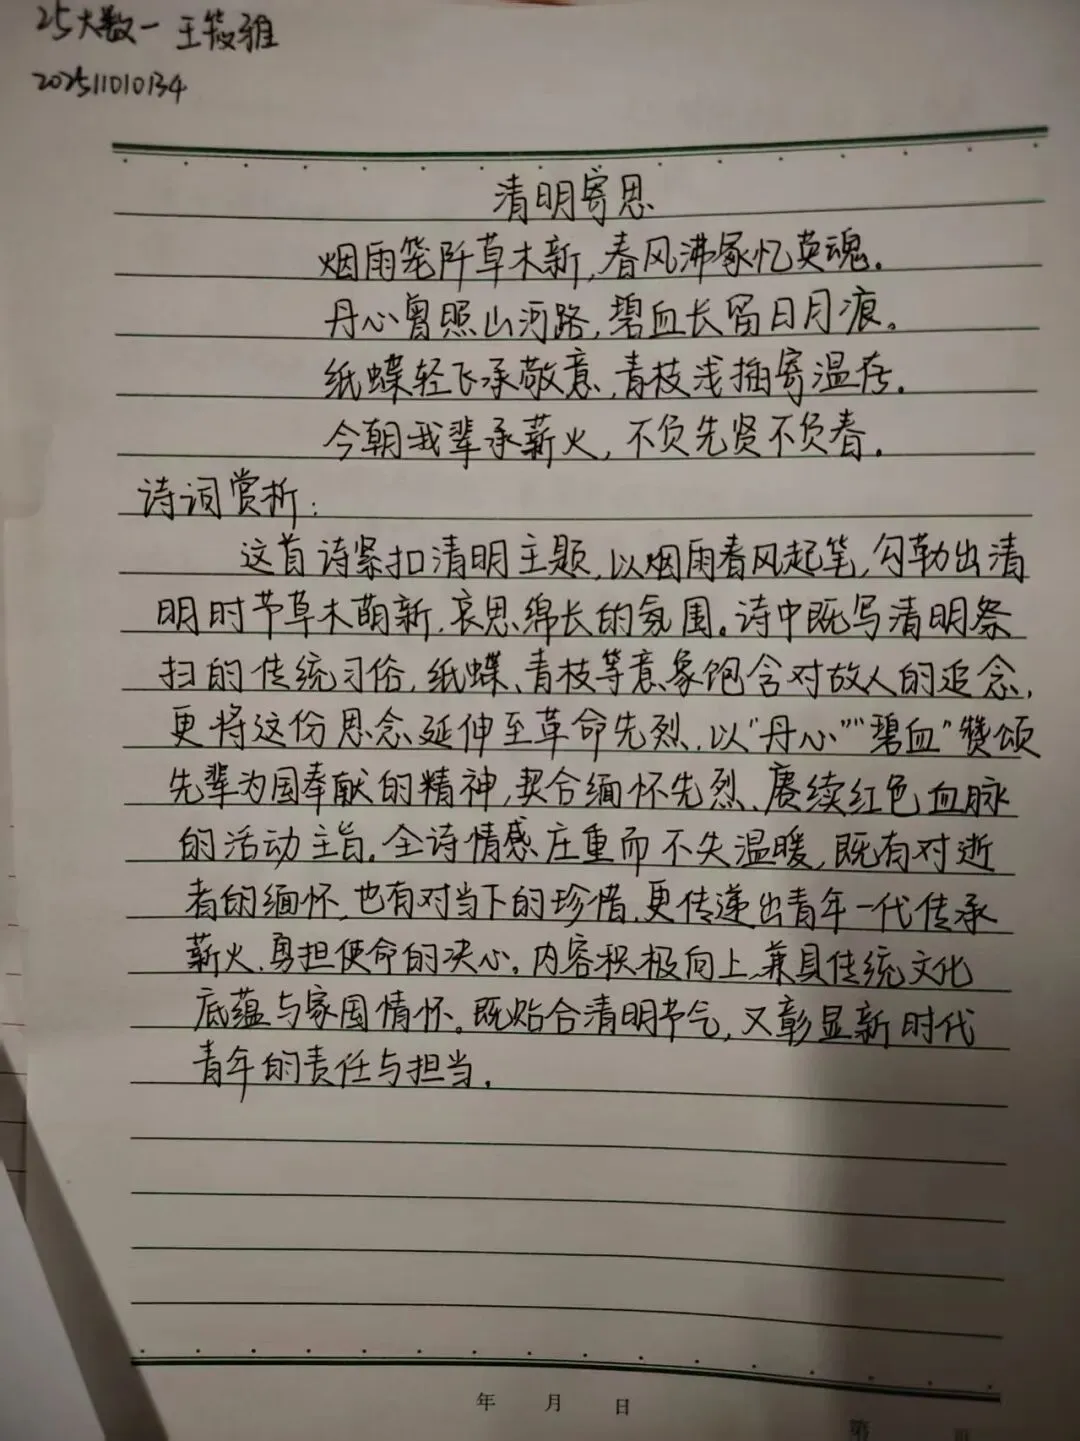 25大数一 王筱雅
202511010134
清明寄思
烟雨笼阡草木新,春风沸冢忆英魂。
丹心曾照山河路,碧血长留日月痕。
纸蝶轻飞承敬意,青枝浅插寄温存。
今朝我辈承薪火,不负先贤不负春。
诗词赏析:
这首诗紧扣清明主题,以烟雨春风起笔,勾勒出清
明时节草木萌新,哀思绵长的氛围。诗中既写清明祭
扫的传统习俗,纸蝶、青枝等意象饱含对故人的追念,
更将这份思念延伸至革命先烈,以“丹心”“碧血”赞颂
先辈为国奉献的精神,契合缅怀先烈、赓续红色血脉
的活动主旨。全诗情感庄重而不失温暖,既有对逝
者的缅怀,也有对当下的珍惜,更传递出青年一代传承
薪火、勇担使命的决心。内容积极向上,兼具传统文化
底蕴与家国情怀。既贴合清明节气,又彰显新时代
青年的责任与担当。
年 月 日
第 页